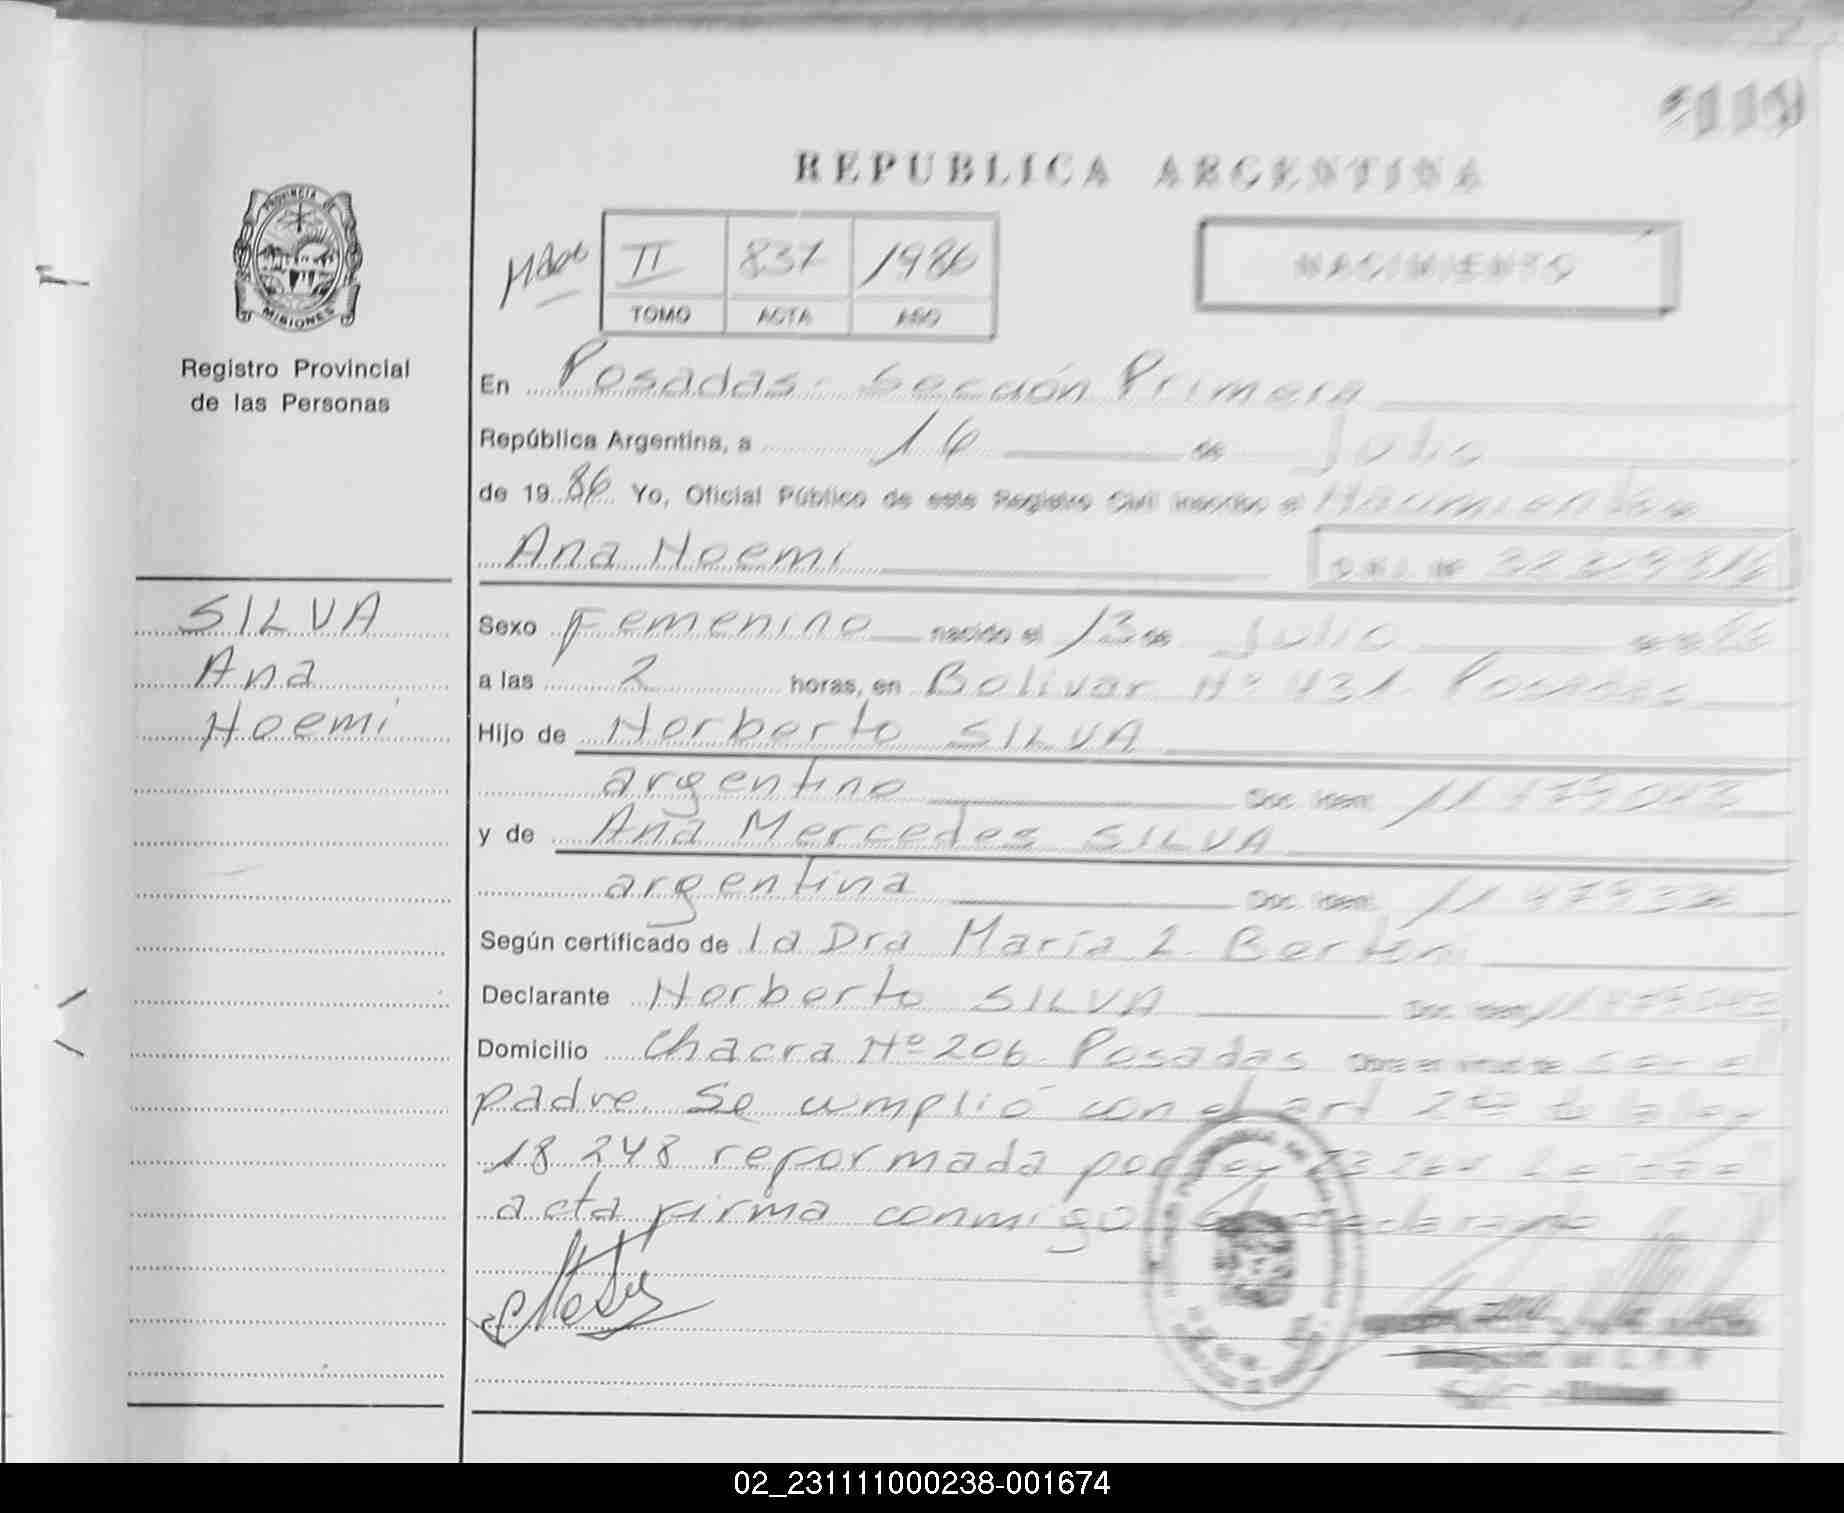 REPUBLICA ARGENTINA
PROVINCIA DE
MISIONES
Registro Provincial
de las Personas
II 837 1986
TOMO ACTA AÑO
NACIMIENTO
En Posadas - Sección Primera
República Argentina, a 16 de Julio
de 1986 Yo, Oficial Público de este Registro Civil inscribo el Nacimiento de
Ana Noemi
D.N.I. Nº
SILVA
Ana
Noemi
Sexo Femenino nacido el 13 de Julio de 1986
a las 2 horas, en Bolivar Nº 431 - Posadas
Hijo de Norberto SILVA
argentino Doc. Ident.
y de Ana Mercedes SILVA
argentina Doc. Ident.
Según certificado de la Dra María
Declarante Norberto SILVA Doc. Ident.
Domicilio Chacra Nº 206 - Posadas Obra en virtud de ser el
padre. Se cumplió con el art 2do de la ley
18.248 reformada por ley
acta firma conmigo el declarante
02_231111000238-001674